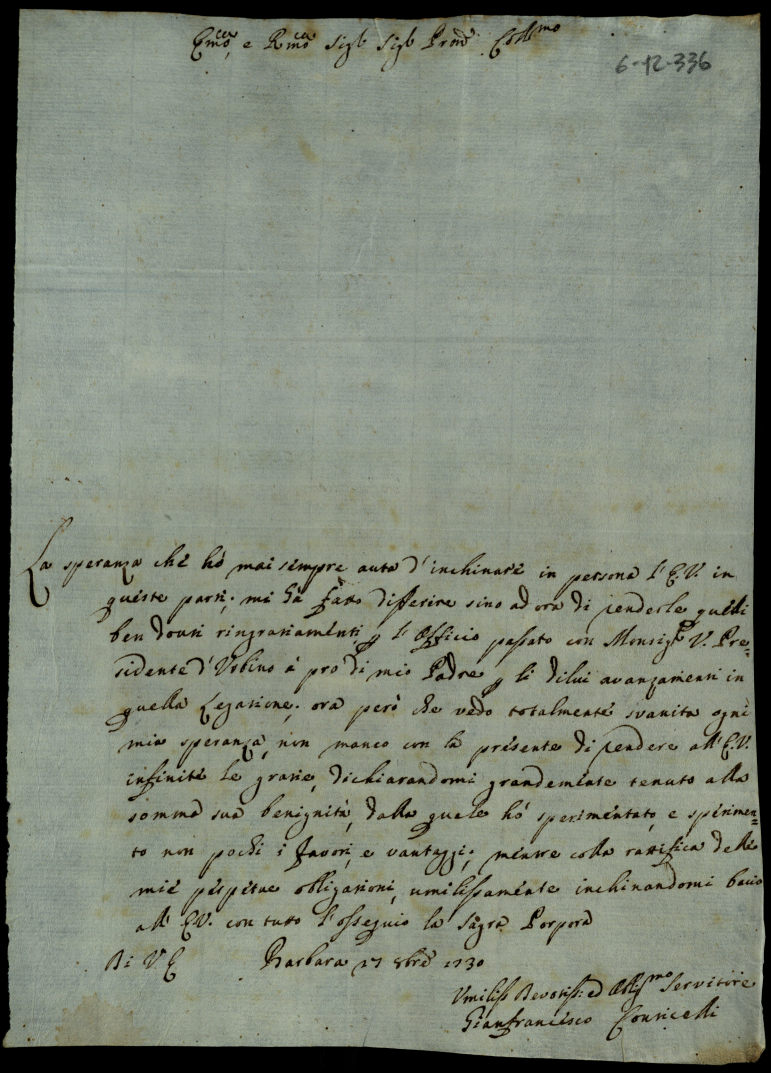 Emo, e Rmo Sigr Sigr Prone Collmo
6-12-336
La speranza che hò mai sempre auta d'inchinare in persona l'E.V. in
queste parti, mi hà fatto differire sino ad ora di renderle quelli
ben douti ringratiamenti p l'Officio passato con Monsigre V. Pre=
sidente d'Urbino à pro di mio Padre p li di lui avanzamenti in
quella Legatione; ora però che vedo totalmente svanita ogni
mia speranza, non manco con la presente di rendere all'E.V.
infinite le gratie, dichiarandomi grandemente tenuto alla
somma sua benignità, dalla quale hò sperimentato, e sperimen=
to non pochi i favori, e vantaggi; mentre colla rattifica delle
mie perpetue obligationi, umilissamente inchinandomi bacio
all'E.V. con tutto l'ossequio la Sagra Porpora
Di V E Barbara 17 8bre 1730
Umiliss Devotiss: ed Obligmo Servitore
Gianfrancesco